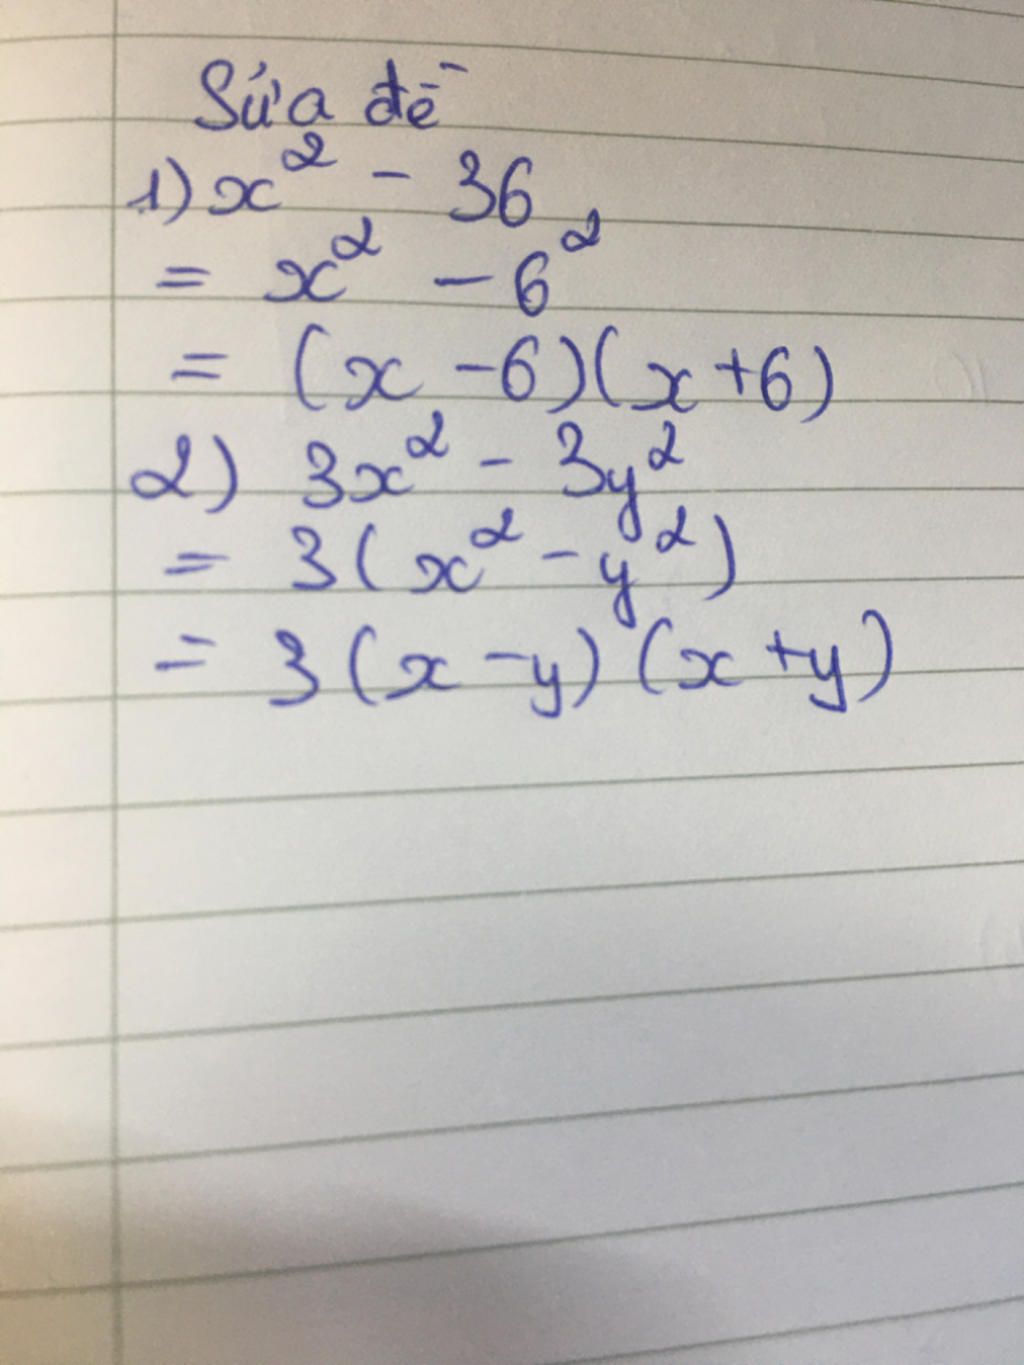 Sửa đề
1) x² - 36
= x² - 6²
= (x - 6)(x + 6)
2) 3x² - 3y²
= 3(x² - y²)
= 3(x - y)(x + y)